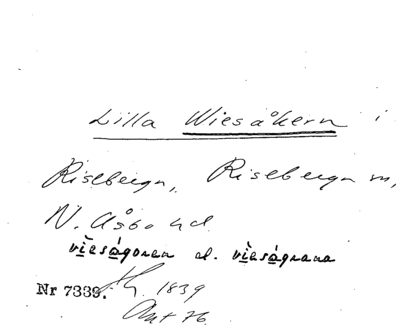 Lilla Wiesåkern i
Riseberga, Riseberga sn,
N. Åsbo hd.
vìeságoren el. vìeságrana
Nr 7339. 1839
Akt 76